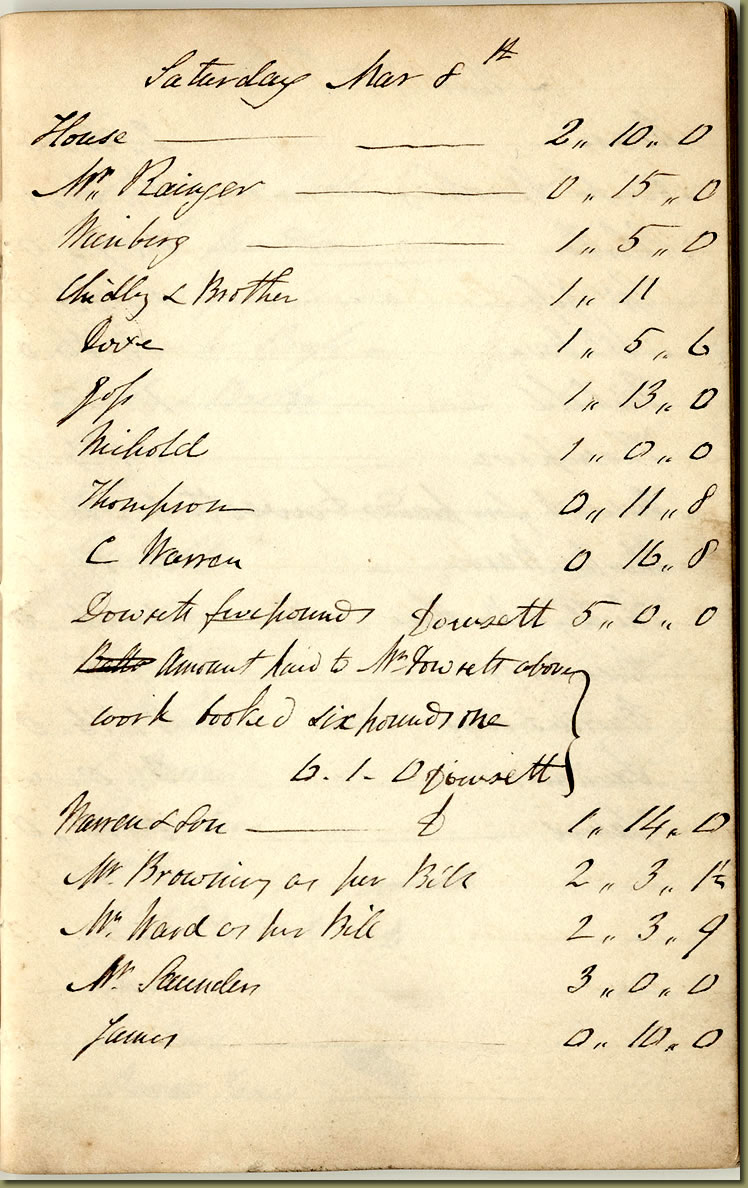 Saturday Mar 8th
House 2 " 10 " 0
Mr. Rainger 0 " 15 " 0
Weinberg 1 " 5 " 0
Chidley & Brother 1 " 11
Dove 1 " 5 " 6
Goss 1 " 13 " 0
Nichold 1 " 0 " 0
Thompson 0 " 11 " 8
C Warren 0 16 " 8
Dowsett five pounds Dowsett 5 " 0 " 0
Amount paid to Mr Dowsett above
work booked six pounds one
6 - 1 - 0 Dowsett
Warren & Son 1 " 14 " 0
Mr. Browning as per Bill 2 " 3 " 1½
Mr. Ward as per Bill 2 " 3 " 9
Mr. Saunders 3 " 0 " 0
James 0 " 10 " 0